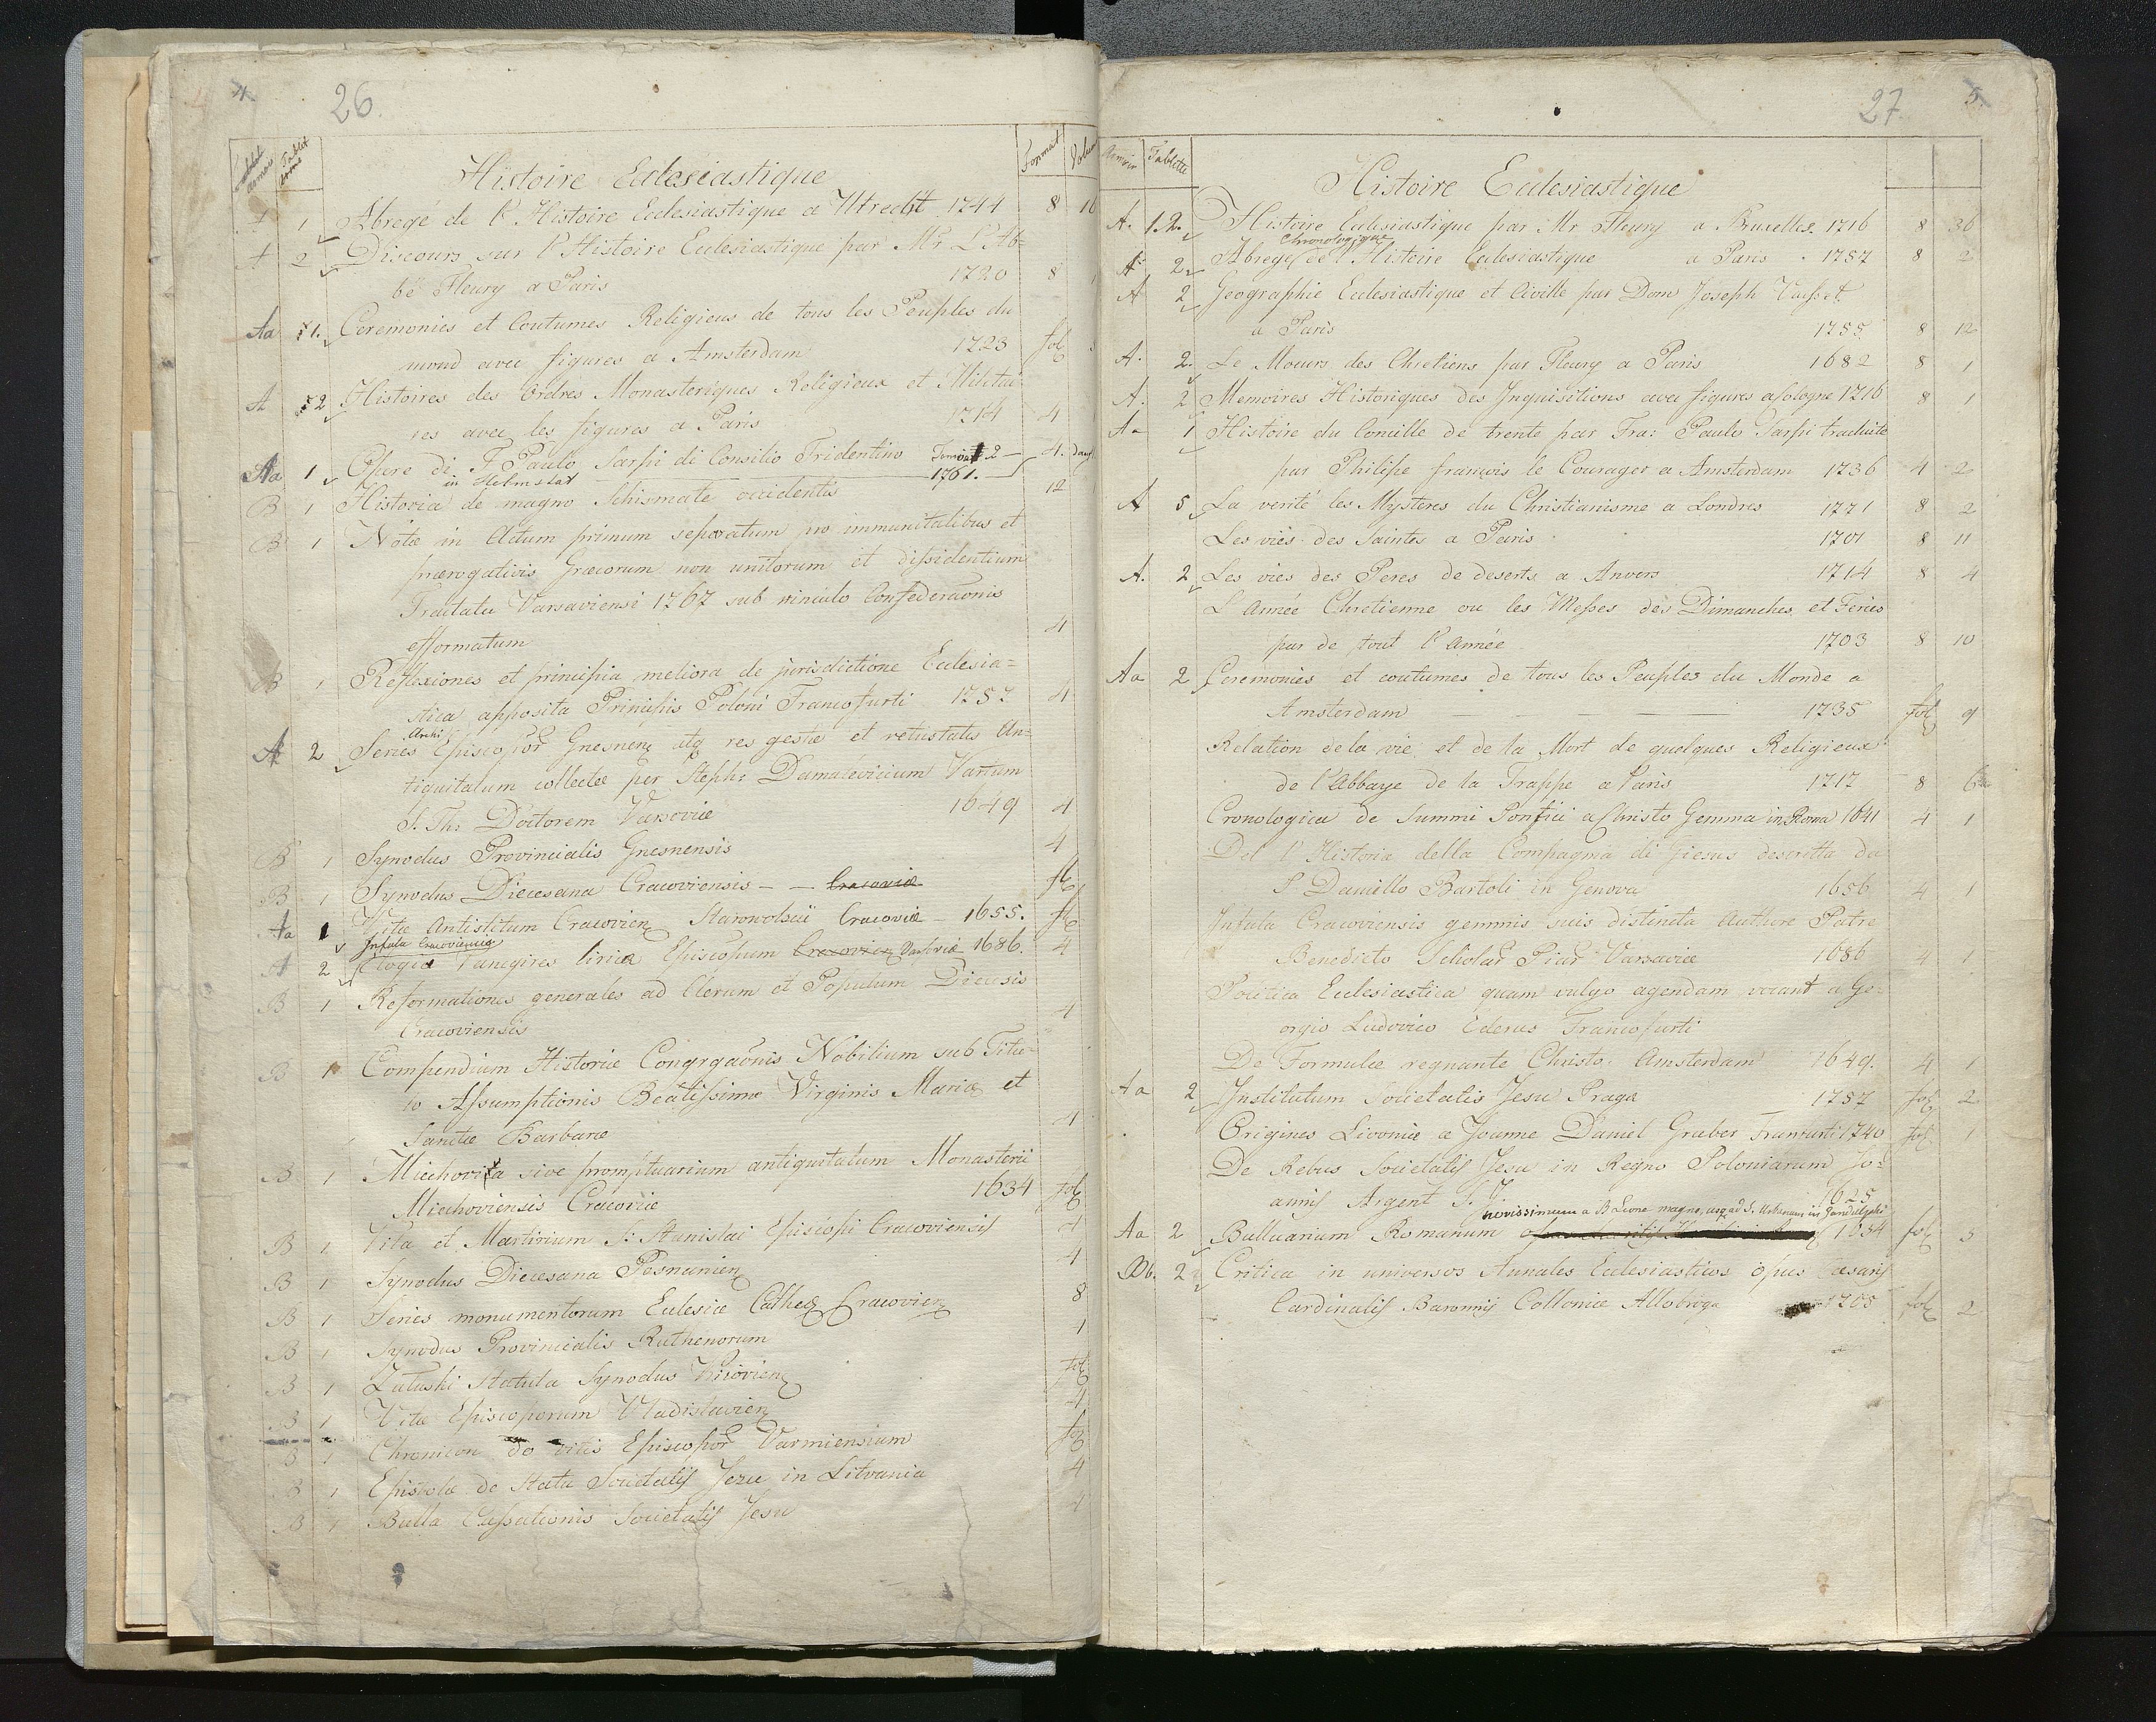 4.
26.
Tablet
Format
Histoire Ecclesiastique
A 1 Abregé de l'Histoire Ecclesiastique a Utrecht 1744 8 16
A 2 Discours sur l'Histoire Ecclesiastique par Mr. L'Ab=
bé Fleury a Paris 1720 8
Aa 1. Ceremonies et Coutumes Religieus de tous les Peuples du
mond avec figures a Amsterdam 1723 fol
A 2 Histoires des Ordres Monasteriques Religieux et Militai
res avec les figures a Paris 1714 4
Aa 1 Opere di F. Paulo Sarpi di Consilio Tridentino 2 – 4.
in Helmstat 1761.
B 1 Historia de magno Schismate occidentis 12
B 1 Notæ in Actum primum separatum pro immunitatibus et
prærogativis Græcorum non unitorum et dissidentium
Tractatu Varsaviensi 1767 sub vinculo Confederaonis
efformatum 4
B 1 Reflexiones et principia meliora de jurisdictione Eclesia=
stica apposita Principis Poloni Francofurti 1757 4
Archi
A 2 Series Episcopor Gnesnen atq res gestæ et vetustatis An=
tiquitatum collectæ per Steph: Damalevicium Varium
S. Th: Doctorem Varsoviæ 1649 4
B 1 Synodus Provincialis Gnesnensis 4
B 1 Synodus Diecesana Cracoviensis – – Cracoviæ fol
Aa 1 Vitæ Antistitum Cracovien Starowolscii Cracoviæ – 1655. fol
Infula Cracoviensis
A 2 Elogia Panegires lirica Episcopum Cracovien Varsoviæ 1686. 4
B 1 Reformationes generales ad Clerum et Populum Diecesis
Cracoviensis 4
B 1 Compendium Historiæ Congrgaõnis Nobilium sub Titu=
lo Assumptionis Beatissimæ Virginis Mariæ et
Sanctæ Barbaræ 4
B 1 Miechovita sive promptuarium antiquitatum Monasterii
Miechoviensis Cracoviæ 1634 fol
B 1 Vita et Martirium S: Stanislai Episcopi Cracoviensis 4
B 1 Synodus Diecesana Posnanien 4
B 1 Series monumentorum Eclesiæ Cathed Cracovien 8
B 1 Synodus Provincialis Ruthenorum 4
B 1 Zaluski Statuta Synodus fol
B 1 Vitæ Episcoporum Vladislavien 4
B 1 Chronicon de vitis Episcopor Varmiensium fol
B 1 Epistola de Statu Societatis Jezu in Litvania 4
B 1 Bulla Cassationis Societatis Jesu 4
27.
5.
Armoir Tablette
Histoire Eclesiastique
A. 1.2. Histoire Eclesiastique par Mr Fleury a Bruxelles. 1716 8 36
Chronologique
A 2 Abregé de l'Histoire Eclesiastique a Paris . 1757 8 2
A 2 Geographie Eclesiastique et Civille par Dom Joseph Vaisset
a Paris 1755 8 12
A. 2. Le Moeurs des Chretiens par Fleury a Paris 1682 8 1
A. 2 Memoires Historiques des Inquisitions avec figures a Cologne 1716 8 1
Aa 1 Histoire du Concille de trente par Fra: Paulo Sarpi traduite
par Philipe françois le Courayer a Amsterdam 1736 4 2
A 5 La verité les Mysteres du Christianisme a Londres 1771 8 2
Les viés des Saintes a Paris 1701 8 11
A. 2 Les vies des Peres de deserts a Anvers 1714 8 4
L'Année Chretienne ou les Messes des Dimanches et Feries
par de tout l'Année 1703 8 10
Aa 2 Ceremonies et coutumes de tous les Peuples du Monde a
Amsterdam – – – 1735 fol 9
Relation de la vie et de la Mort de quelques Religieux
de l'Abbaye de la Trappe a Paris 1717 8 6
Cronologica de Summi Pontici a Christo Gemma in Roma 1641 4 1
Del l'Historia della Compagnia di Giesus descritta da
P. Daniello Bartoli in Genova 1656 4 1
Infula Cracoviensis gemmis suis distincta Authore Patre
Benedicto Scholar Piar Varsaviæ 1686 4 1
Poritica Eclesiastica quam vulgo agendam vocant a Ge=
orgio Ludovico Ederus Francofurti
De Formulæ regnante Christo. Amsterdam 1649. 4 1
Aa 2 Institutum Societatis Jesu Praga 1757 fol 2
Origines Livoniæ a Joanne Daniel Gruber Francfurti 1740 fol 1
De Rebus Societatis Jesu in Regno Poloniarum Jo=
annis Argent S. J 1625
novissimum a B Leone magno, usq ad S.
Aa 2 Bulluarium Romanum 1634 fol 5
Bb. 2 Critica in universos Annales Eclesiasticos opus Cæsaris
Cardinalis Baronnis Colloniæ Allobroga 1705 fol 2